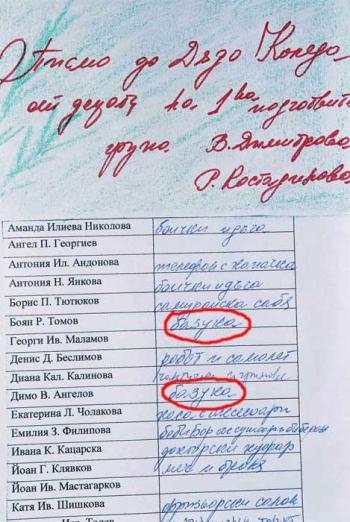 Писмо до Дядо Коледа
от децата на 1ва подготвит.
група. В. Димитрова
Р. Костадинова
Аманда Илиева Николова
Ангел П. Георгиев
Антония Ил. Андонова телефон с копчета
Антония Н. Янкова
Борис П. Тютюков самурайска сабя
Боян Р. Томов базука
Георги Ив. Маламов
Денис Д. Беслимов робот и самолет
Диана Кал. Калинова
Димо В. Ангелов базука
Екатерина Л. Чолакова
Емилия З. Филипова
Ивана К. Кацарска докторски куфар
Йоан Г. Клявков меч и броня
Йоан Ив. Мастагарков
Катя Ив. Шишкова фризьорски салон